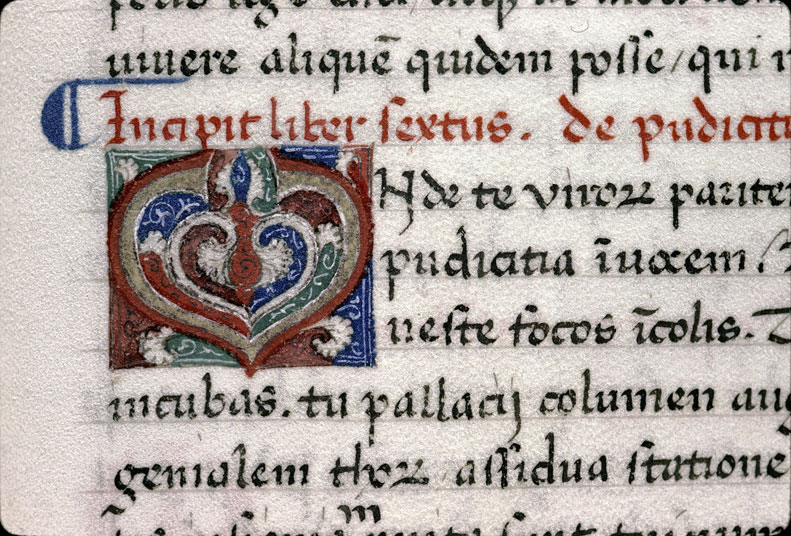 uiuere aliquē quidem posse/qui
¶ Incipit liber sextus. De pudiciti
Vnde te viroꝝ pariter
pudicitia īuocem?
neste focos īcolis.
incubas. tu pallacij columen aug
genialem thoꝝ assidua statione